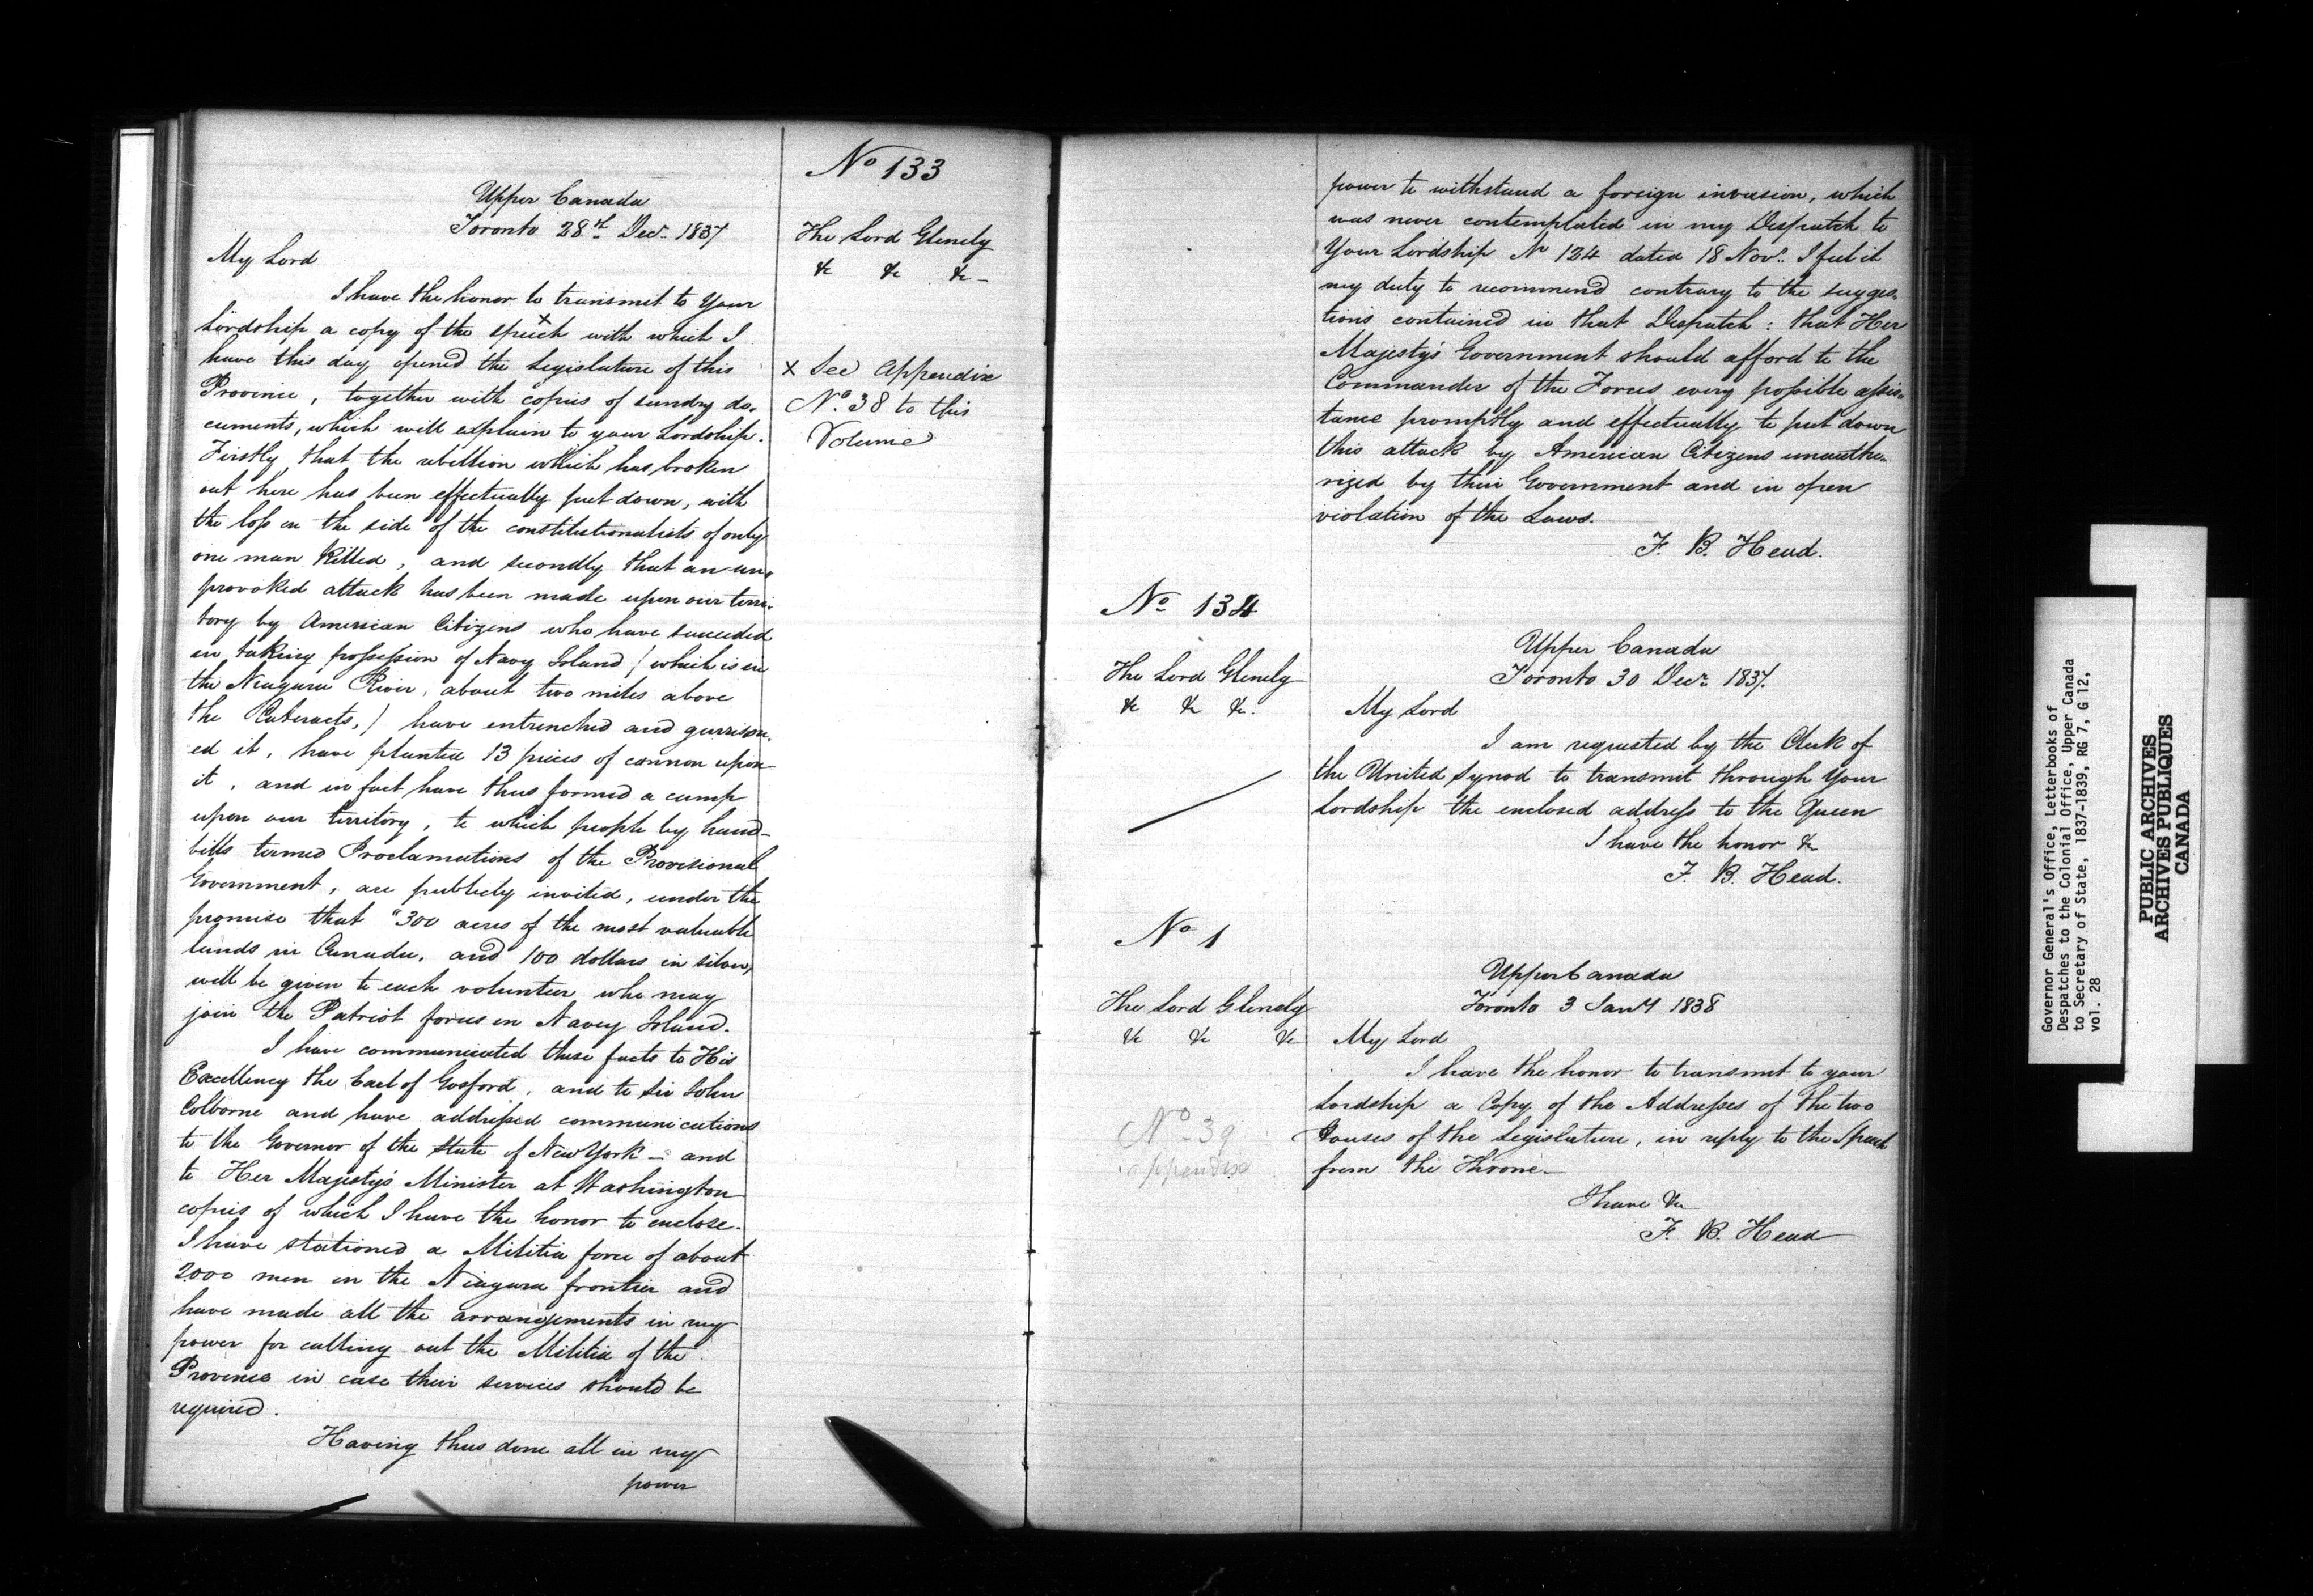 No 133
The Lord Glenelg
&c &c &c
x See Appendix
No. 38 to this
Volume
Upper Canada
Toronto 28th Decr 1837
My Lord
I have the honor to transmit to Your
Lordship a copy of the speech x with which I
have this day opened the Legislature of this
Province, together with copies of sundry do-
cuments, which will explain to your Lordship.
Firstly that the rebellion which has broken
out here has been effectually put down, with
the loss on the side of the constitutionalists of only
one man killed, and secondly that an un-
provoked attack has been made upon our terri-
tory by American Citizens who have succeeded
in taking possession of Navy Island / which is in
the Niagara River, about two miles above
the Cataracts, / have entrenched and garrison-
ed it, have planted 13 pieces of cannon upon
it, and in fact have thus formed a camp
upon our territory, to which people by hand-
bills termed Proclamations of the Provisional
Government, are publicly invited, under the
promise that "300 acres of the most valuable
lands in Canada, and 100 dollars in silver,
will be given to each volunteer who may
join the Patriot forces on Navy Island.
I have communicated these facts to His
Excellency the Earl of Gosford, and to Sir John
Colborne and have addressed communications
to the Governor of the State of New York - and
to Her Majesty's Minister at Washington
copies of which I have the honor to enclose.
I have stationed a Militia force of about
2000 men on the Niagara frontier and
have made all the arrangements in my
power for calling out the Militia of the
Province in case their services should be
required.
Having thus done all in my
power
power to withstand a foreign invasion, which
was never contemplated in my Despatch to
Your Lordship No 124 dated 18 Novr. I feel it
my duty to recommend contrary to the sugges-
tions contained in that Despatch: that Her
Majesty's Government should afford to the
Commander of the Forces every possible assis-
tance promptly and effectually to put down
this attack by American Citizens unautho-
rized by their Government and in open
violation of the Laws.
F. B. Head.
No 134
The Lord Glenelg
&c &c &c.
Upper Canada
Toronto 30 Decr 1837.
My Lord
I am requested by the Clerk of
the United Synod to transmit through Your
Lordship the enclosed address to the Queen
I have the honor &c
F. B. Head.
No 1
The Lord Glenelg
&c &c &c
No 39
appendix
Upper Canada
Toronto 3 Jany 1838
My Lord
I have the honor to transmit to your
Lordship a Copy of the Addresses of the two
Houses of the Legislature, in reply to the Speech
from the Throne-
I have &c
F. B. Head
Governor General's Office, Letterbooks of
Despatches to the Colonial Office, Upper Canada
to Secretary of State, 1837-1839, RG 7, G 12,
vol. 28
PUBLIC ARCHIVES
ARCHIVES PUBLIQUES
CANADA